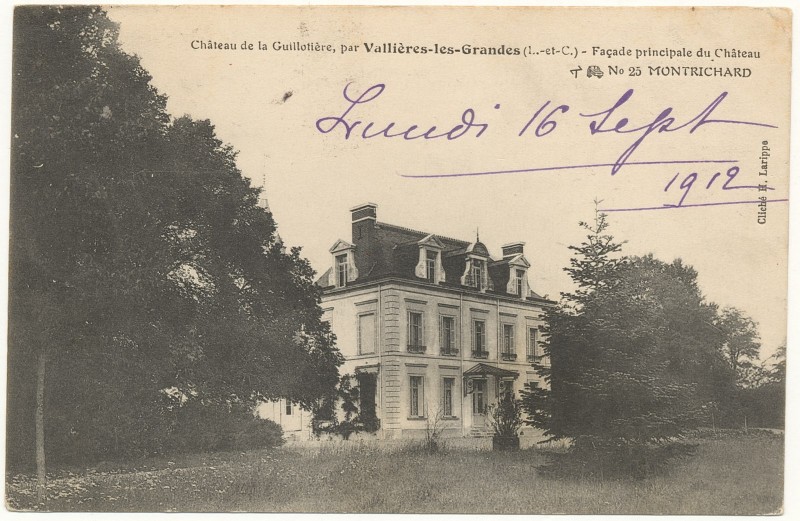 Château de la Guillotière, par Vallières-les-Grandes (L.-et-C.) - Façade principale du Château
No 25 MONTRICHARD
Lundi 16 Sept
1912
Cliché H. Larippe